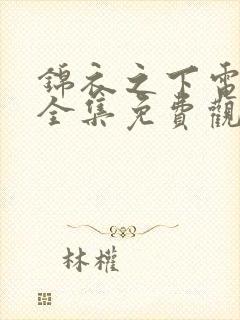 錦衣之下電
全集免費觀
林權